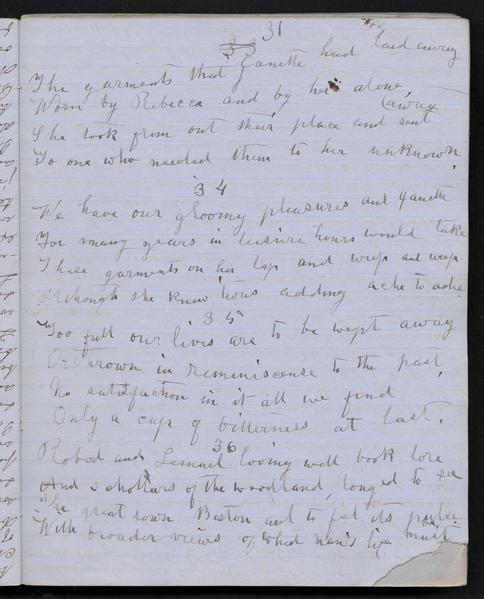 33 31
The garments that Janette had laid away
Worn by Rebecca and by her alone
She took from out their place and sent (away
To one who needed them to her unknown.
34
We have our gloomy pleasures and Janette
For many years in leisure hours would take
These garments on her lap and weep and weep
Although she knew twas adding ache to ache
35
Too full our lives are to be wept away
Or thrown in reminiscense to the past,
No satisfaction in it all we find
Only a cup of bitterness at last.
36
and Lemuel loving well book lore
And scholars of the woodland, longed to see
The great town Boston and to feel its pulse
With broader views of what man's life must be